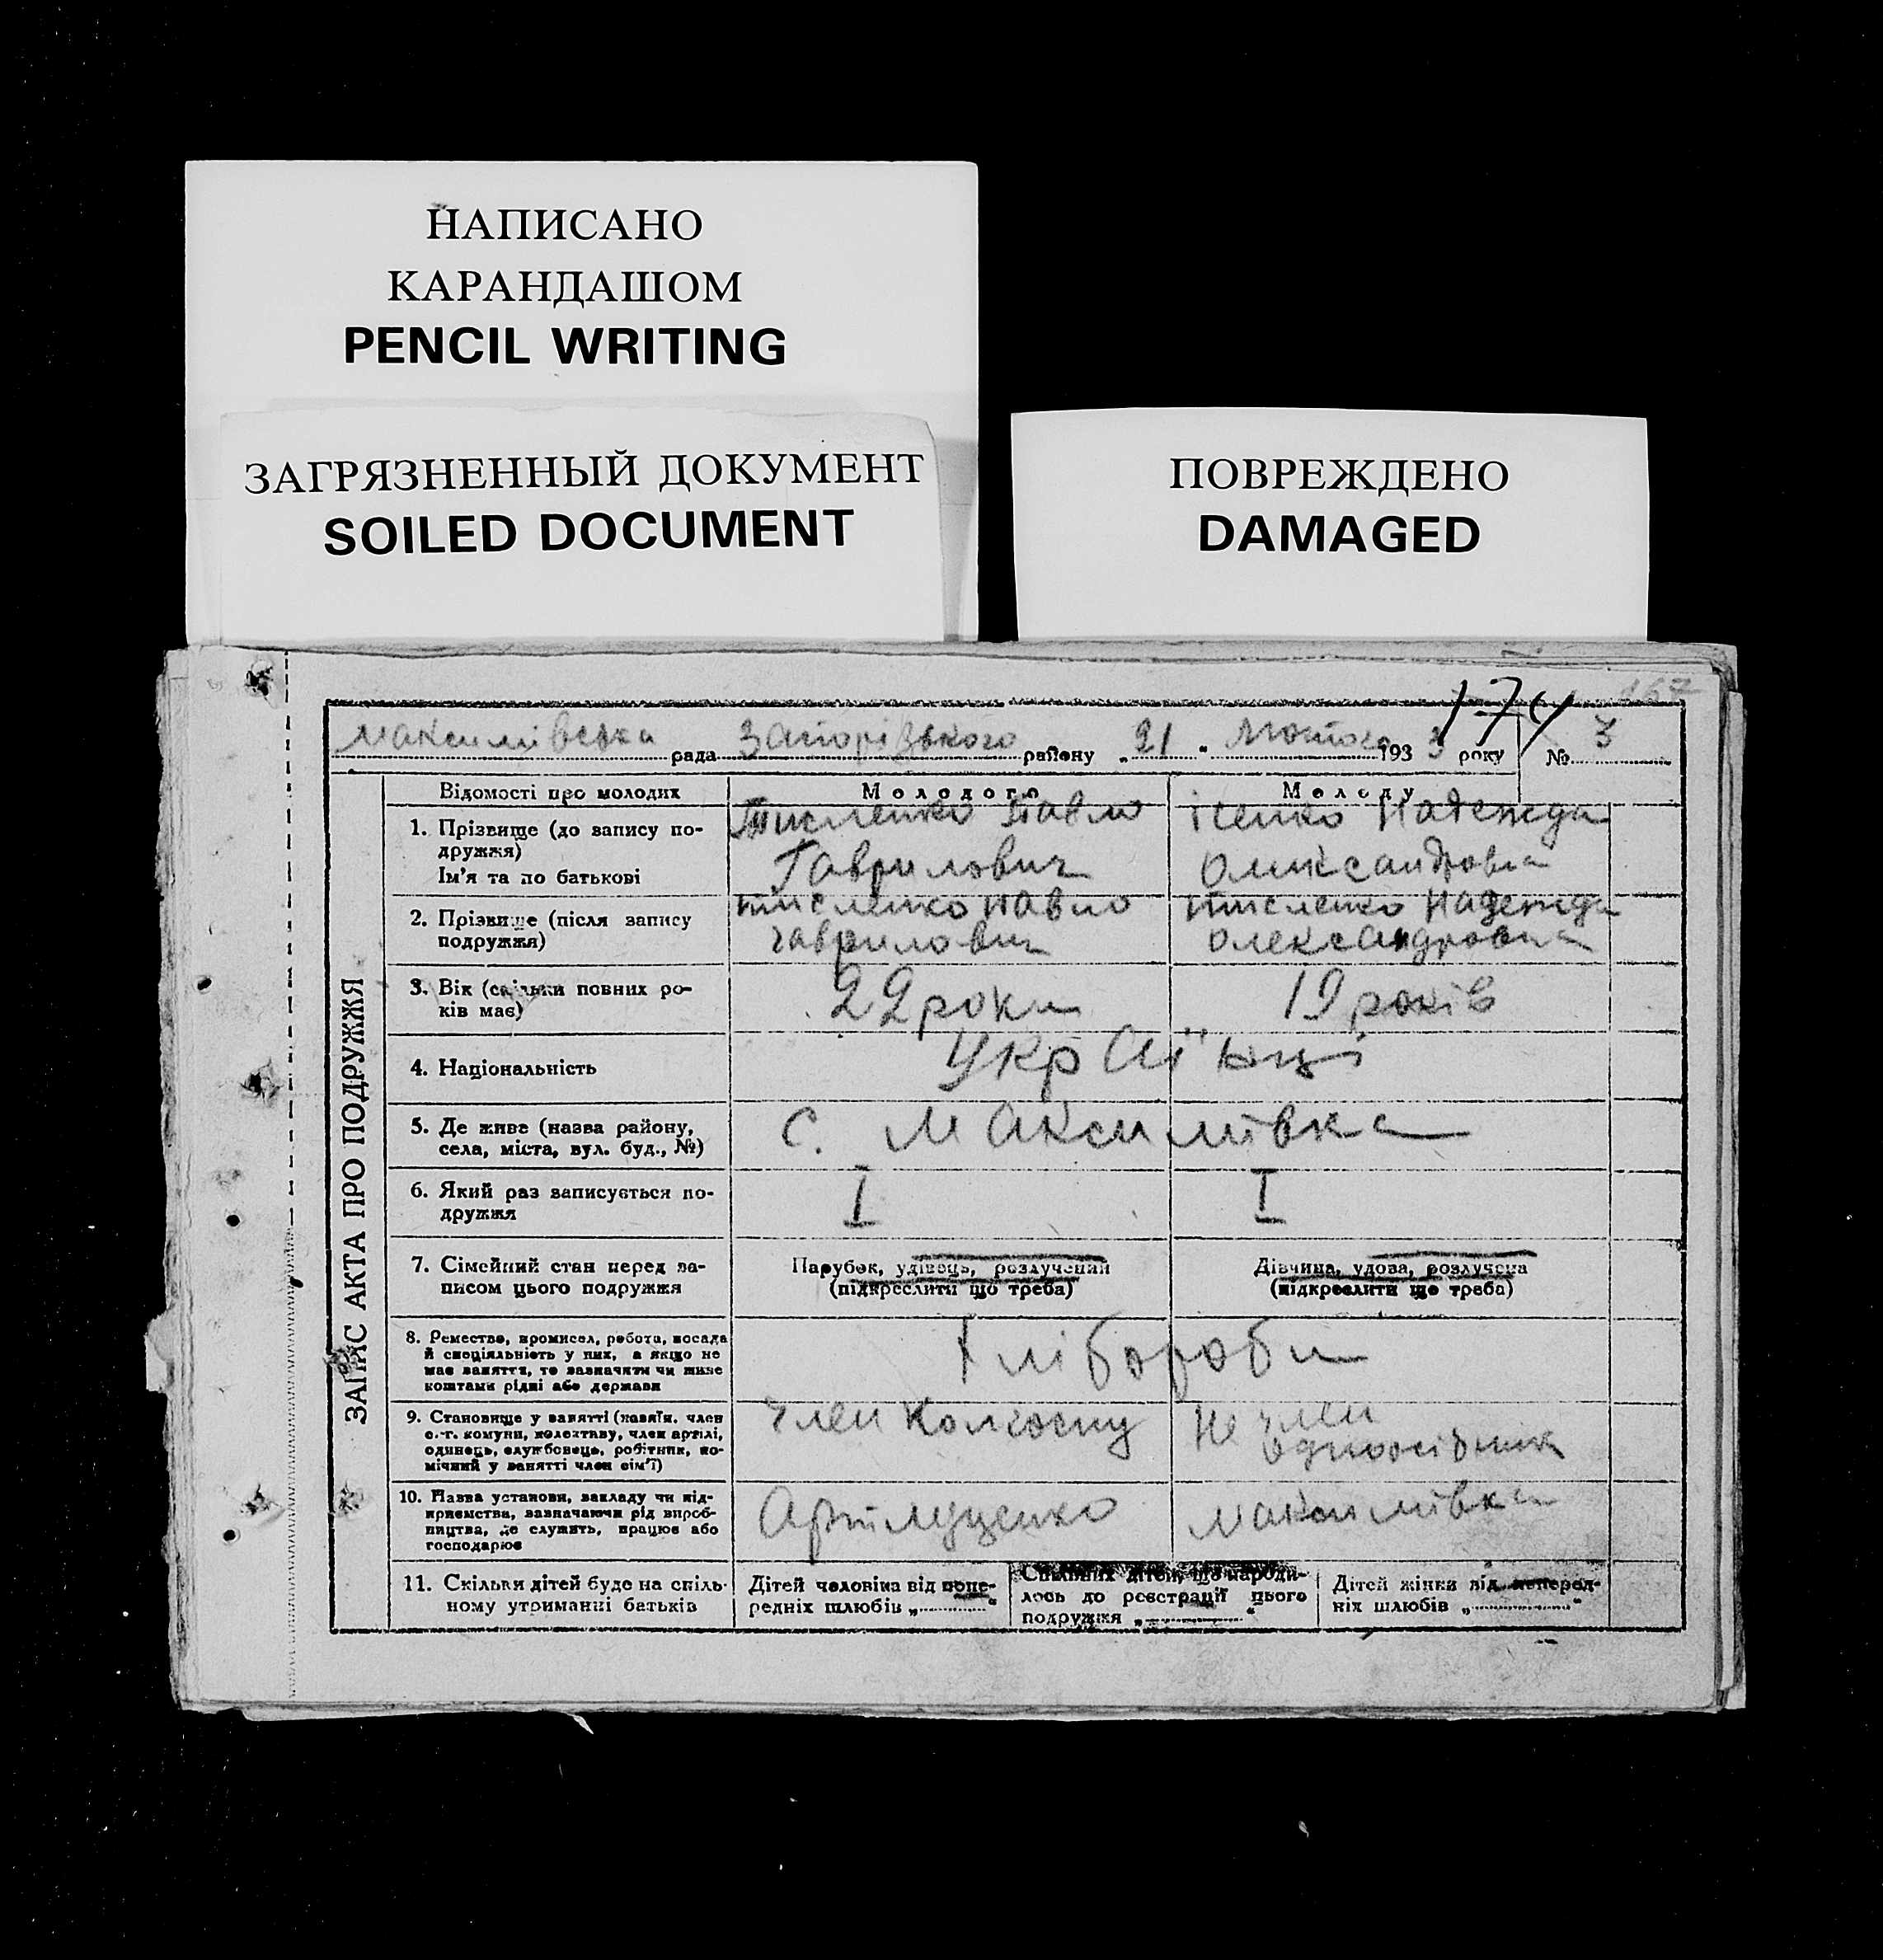 НАПИСАНО
КАРАНДАШОМ
PENCIL WRITING
ЗАГРЯЗНЕННЫЙ ДОКУМЕНТ
SOILED DOCUMENT
ПОВРЕЖДЕНО
DAMAGED
174
167
Максимівська рада району „21“ Лютого 1933 року № 3
ЗАПИС АКТА ПРО ПОДРУЖЖЯ
Відомості про молодих
Молодого
Молоду
1. Прізвище (до запису по-
дружжя)
Ім'я та по батькові
Тисленко Павло
Гаврилович
Ісенко Надежда
Олександровна
2. Прізвище (після запису
подружжя)
тисленко Павло
гаврилович
тисленко Надежда
олександровна
3. Вік (скільки повних ро-
ків має)
22 роки
19 років
4. Національність
Українці
5. Де живе (назва району,
села, міста, вул. буд., №)
с. Максимівка
6. Який раз записується по-
дружжя
I
I
7. Сімейний стан перед за-
писом цього подружжя
Парубок, удівець, розлучений
(підкреслити що треба)
Дівчина, удова, розлучена
(підкреслити що треба)
8. Ремество, промисел, робота, посада
й спеціяльність у них, а якщо не
має заняття, то зазначити чи живе
коштами рідні або держави
Хлібороби
9. Становище у занятті (хазяїн, член
с.-г. комуни, колективу, член артілі,
одинець, службовець, робітник, по-
мічний у занятті член сім'ї)
член колгоспу
Не член
одноосібник
10. Назва установи, закладу чи під-
приємства, зазначаючи рід вироб-
ництва, де служить, працює або
господарює
Максимівка
11. Скільки дітей буде на спіль-
ному утриманні батьків
Дітей чоловіка від попе-
редніх шлюбів „ “
Спільних дітей, що народи-
лось до реєстрації цього
подружжя „ “
Дітей жінки від поперед-
ніх шлюбів „ “